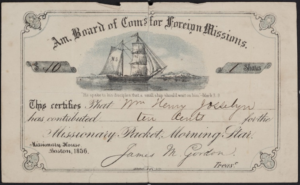 Am. Board of Coms for Foreign Missions.
10
1 Share
This certifies That Wm Henry Josselyn
has contributed ten cents for the
Missionary Packet, Morning Star.
Missionary House
Boston, 1856.
James M. Gordon
Treasr